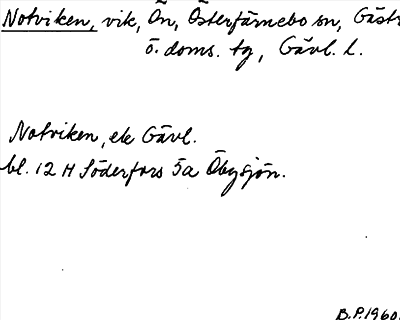 Notviken, vik, Ön, Österfärnebo sn, Gästr
ö. doms. tg, Gävl. l.
Notviken, ek Gävl.
bl. 12 H Söderfors 5a Öbysjön.
B.P. 1960.